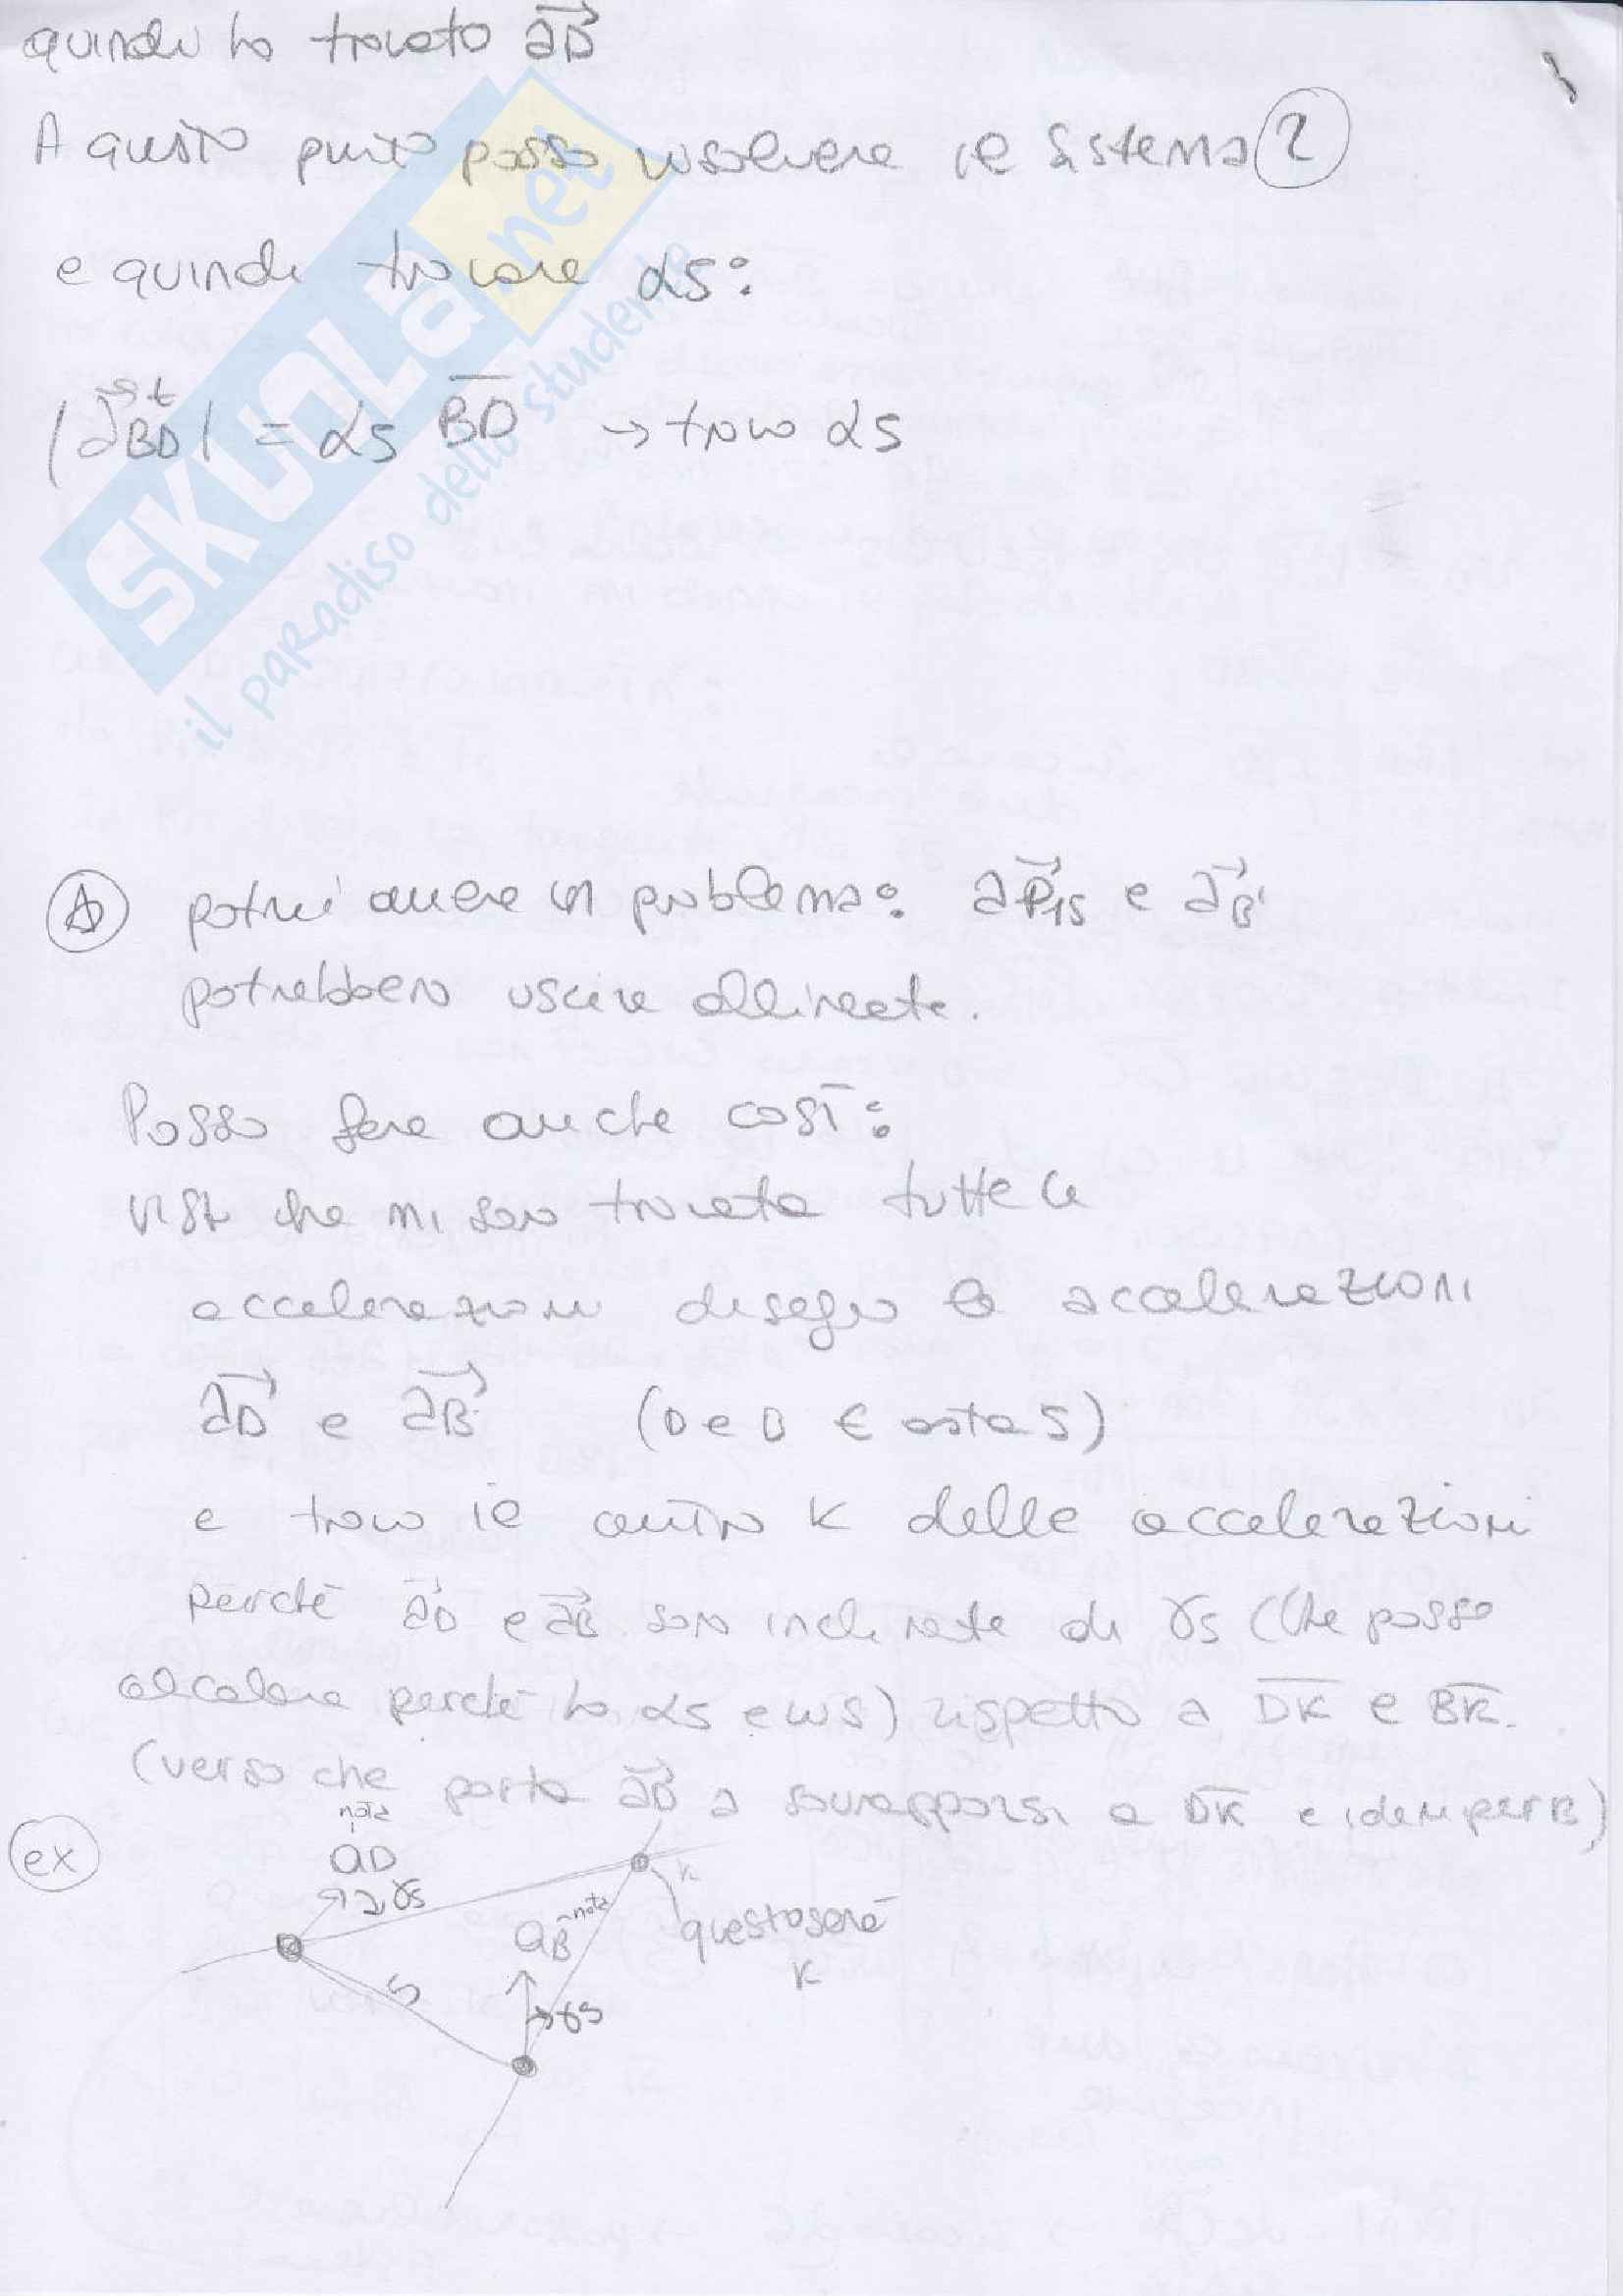 quindi ho trovato aD
A questo punto posso risolvere il sistema 2
e quindi trovare α5:
|a^t BD| = α5 BD → trovo α5
SKUOLA.net
il paradiso dello studente
potrei avere un problema: aP15 e aB
potrebbero uscire allineate.
Posso fare anche così:
visto che mi sono trovata tutte le
accelerazioni disegno le accelerazioni
aD e aB (D e B ∈ asta 5)
e trovo il centro K delle accelerazioni
perché aD e aB sono inclinate di γ5 (che posso
calcolare perché ho α5 e ω5) rispetto a DK e BK.
(verso che porta aD a sovrapporsi a DK e idem per B)
ex
nota
aD
γ5
K
aB nota
questo sarà
K
5
γ5